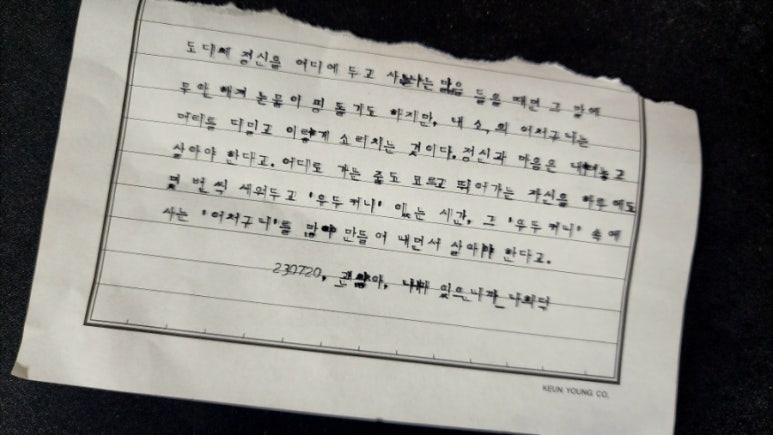 도대체 정신을 어디에 두고 사느냐는 말을 들을 때면 그 말에
무안 해져 눈물이 핑 돌기도 하지만, 내 속의 어처구니는
머리를 디밀고 이렇게 소리치는 것이다. 정신과 마음은 내려놓고
살아야 한다고. 어디로 가는 줄도 모르고 뛰어가는 자신을 하루에도
몇 번씩 세워두고 '우두커니' 있는 시간, 그 '우두커니' 속에
사는 '어처구니'를 많이 만들어 내면서 살아야 한다고.
230720, 괜찮아, 네가 있으니까_
KEUN YOUNG CO.